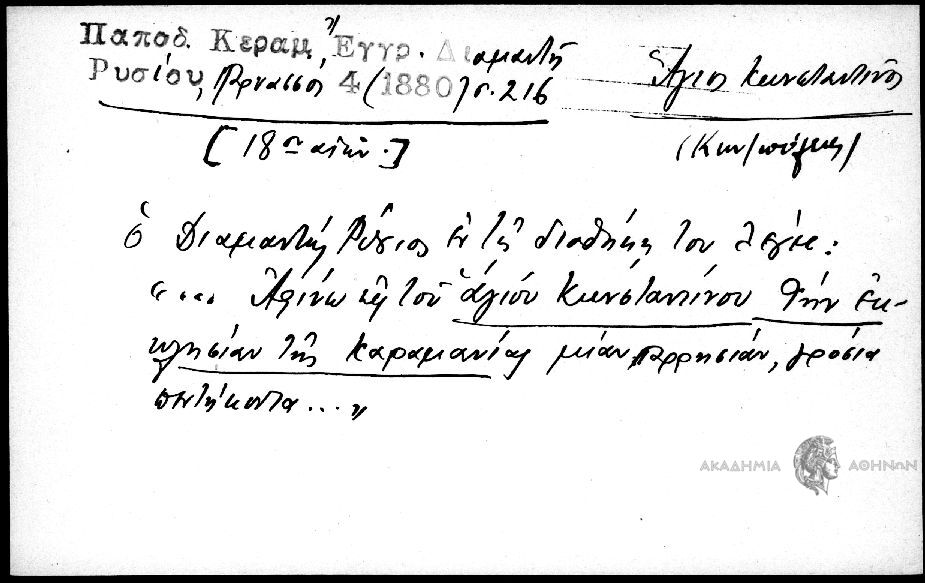 Παποδ. Κεραμ, Ἔγγρ. Διαμαντῆ
Ρυσίου, Παρνασσὸς 4 (1880) σ. 216
Ἅγιος Κωνσταντῖνος
[18ος αἰών.]
(Κων/πόλεως)
ὁ Διαμαντῆς Ρύσιος ἐν τῇ διαθήκῃ του λέγει:
"... Ἀφίνω εἰς τοῦ ἁγίου Κωνσταντίνου τὴν ἐκ-
κλησίαν τῆς Καραμανίας μίαν παρρησίαν, γρόσια
πεντήκοντα..."
ΑΚΑΔΗΜΙΑ ΑΘΗΝΩΝ